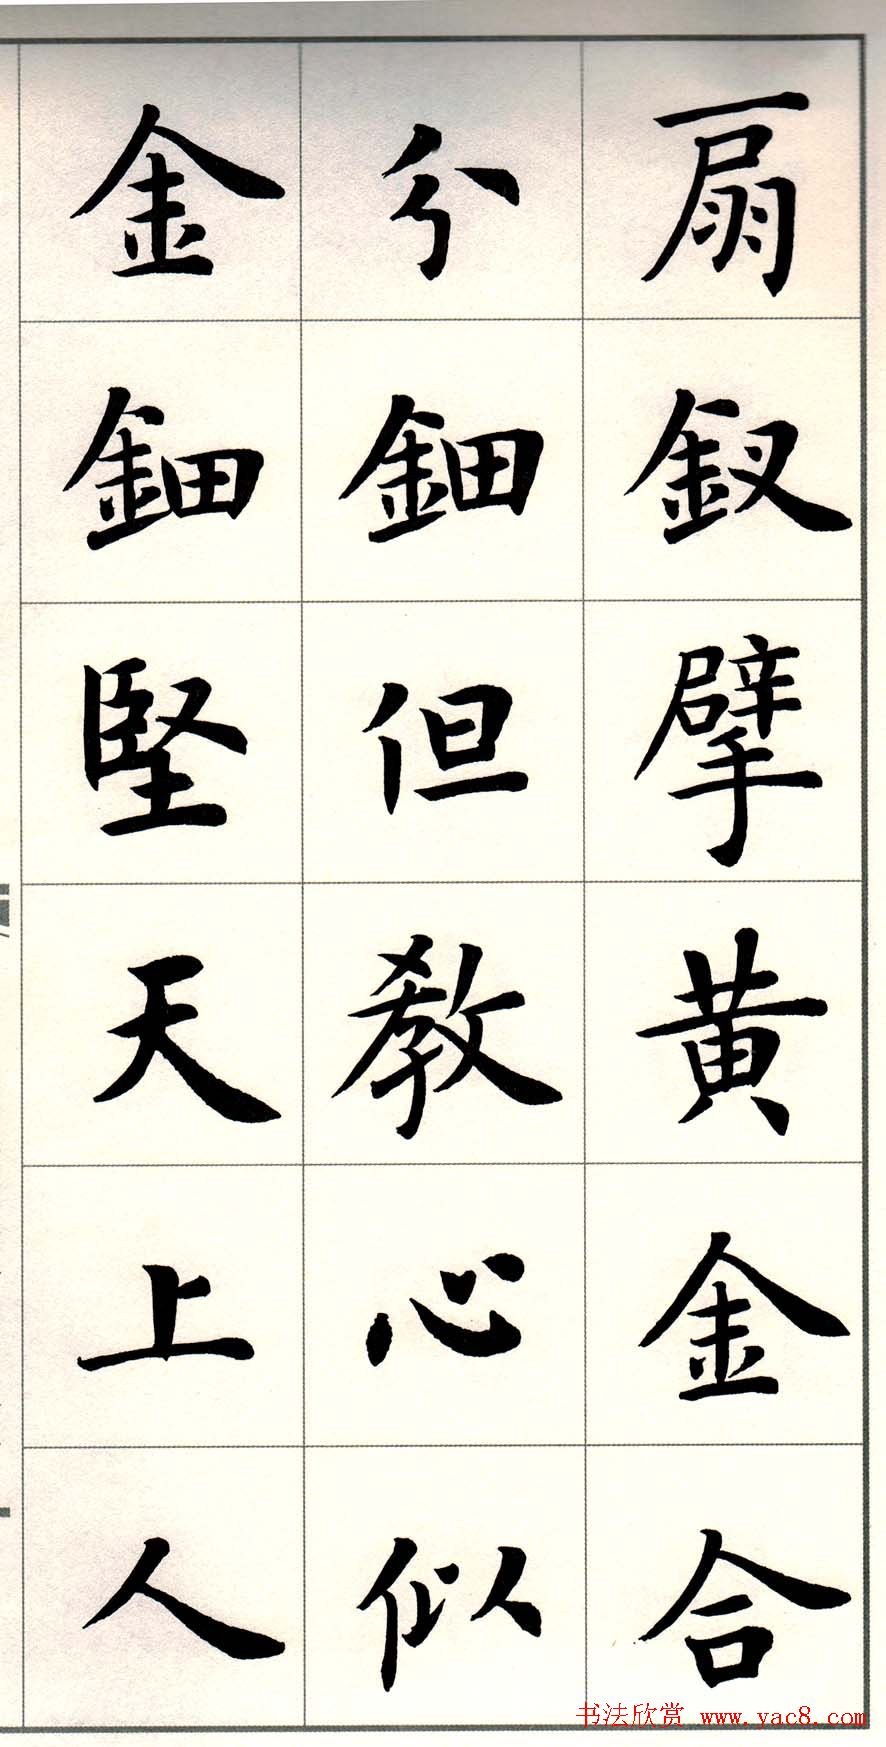 扇釵擘黃金合
分鈿但教心似
金鈿堅天上人
书法欣赏 www.yac8.com